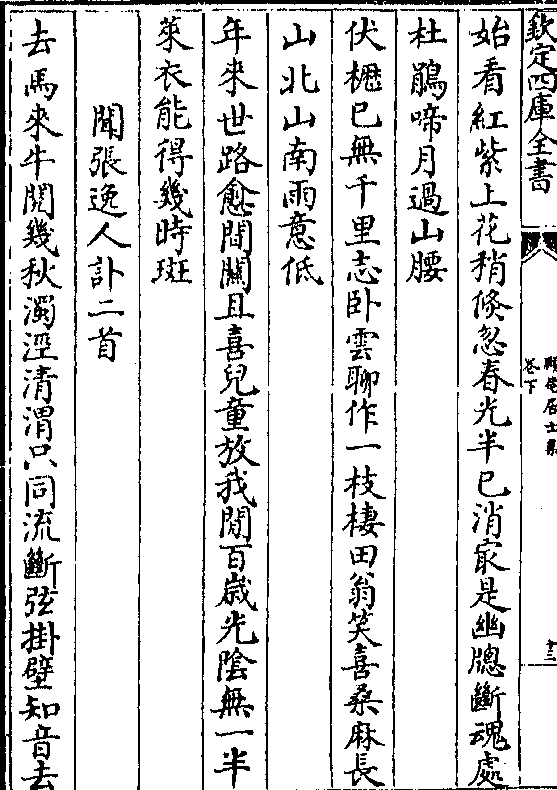 欽定四庫全書
卷下
十三
始看紅紫上花稍倐忽春光半已消㝡是幽牕斷魂處
杜鵑啼月過山腰
伏櫪已無千里志卧雲聊作一枝棲田翁笑喜桑麻長
山北山南雨意低
年來世路愈間關且喜兒童放我閒百歳光陰無一半
萊衣能得幾時斑
聞張逸人訃二首
去馬來牛閲幾秋濁涇清渭只同流斷弦掛壁知音去